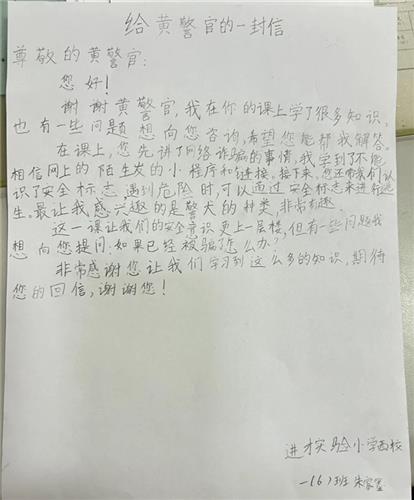 给黄警官的一封信
尊敬的黄警官:
您好!
谢谢黄警官,我在你的课上学了很多知识,
也有一些问题想向您咨询,希望您能帮我解答。
在课上,您先讲了网络诈骗的事情,我学到了不能
相信网上的陌生发的小程序和链接。接下来,您还带我们认
识了安全标志,遇到危险时,可以通过安全标志来进行逃
生。最让我感兴趣的是警犬的种类,非常有趣。
这一课让我们的安全意识更上一层楼,但有一些问题我
想向您提问:如果已经被骗了怎么办?
非常感谢您让我们学习到这么多的知识,期待
您的回信,谢谢您!
进才实验小学西校
一(6)班 朱家